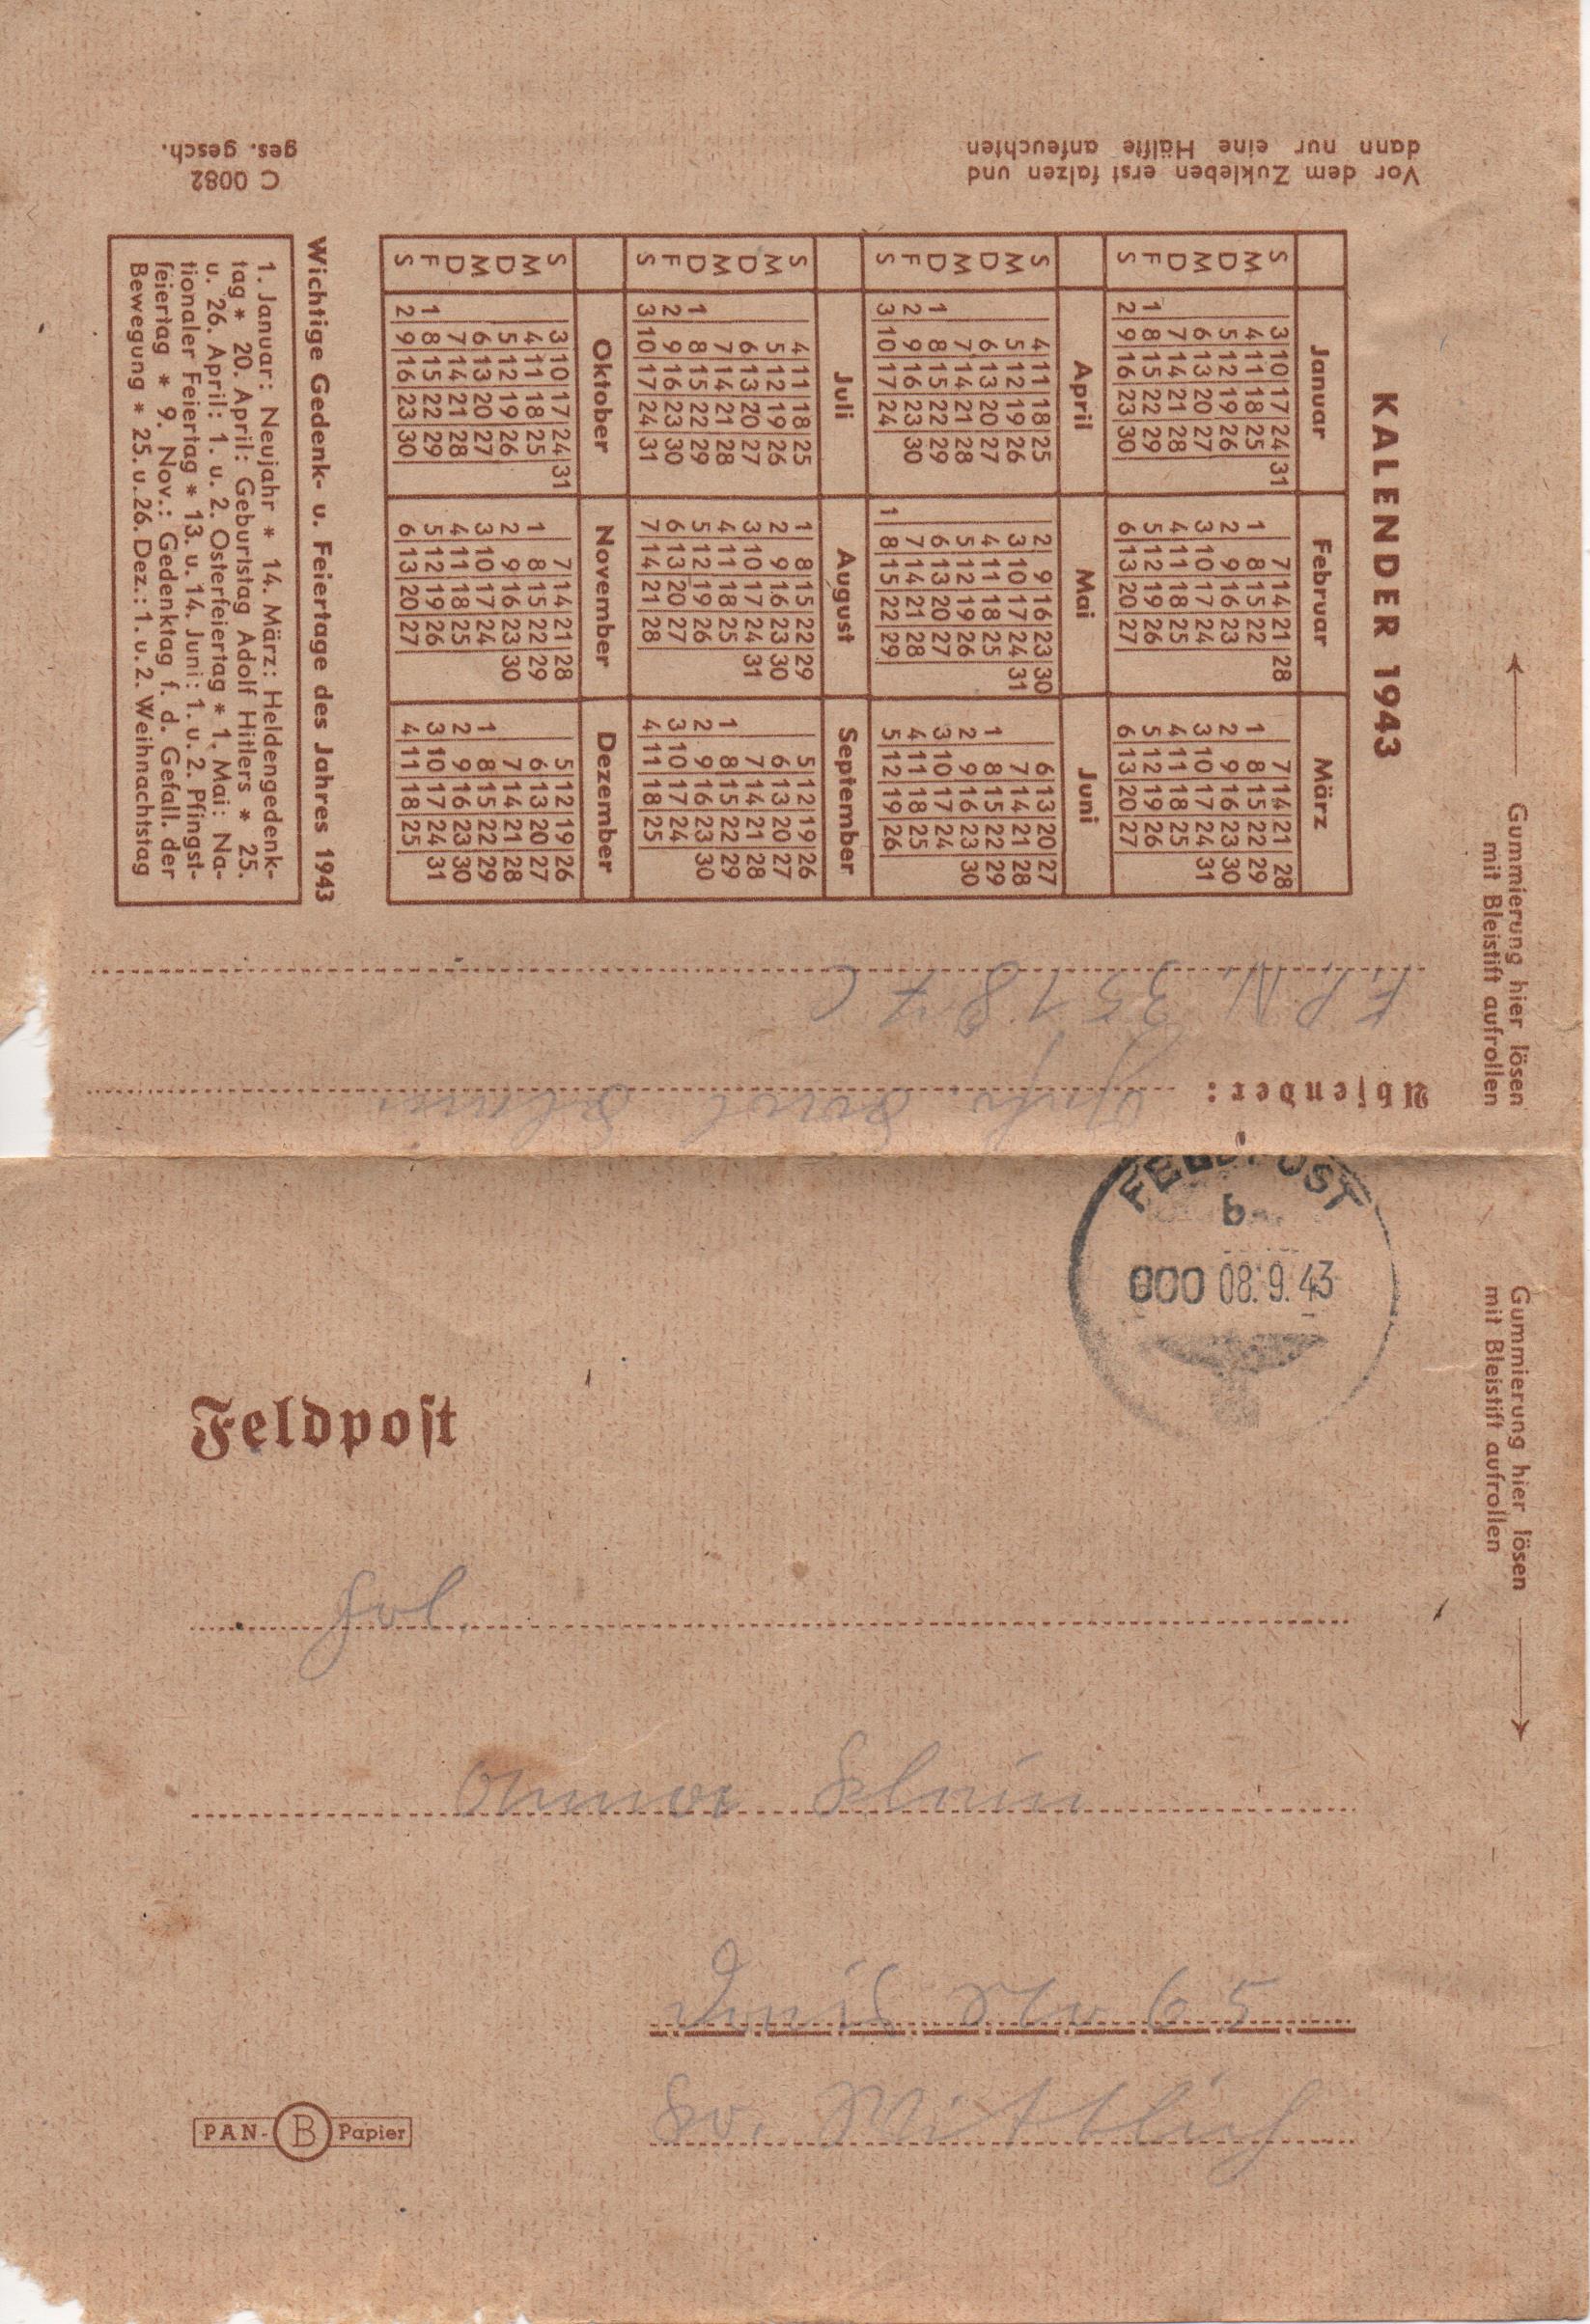 Vor dem Zukleben erst falzen und
dann nur eine Hälfte anfeuchten
C 0082
ges. gesch.
KALENDER 1943
Januar Februar März
S 3 10 17 24 31 7 14 21 28 7 14 21 28
M 4 11 18 25 1 8 15 22 1 8 15 22 29
D 5 12 19 26 2 9 16 23 2 9 16 23 30
M 6 13 20 27 3 10 17 24 3 10 17 24 31
D 7 14 21 28 4 11 18 25 4 11 18 25
F 1 8 15 22 29 5 12 19 26 5 12 19 26
S 2 9 16 23 30 6 13 20 27 6 13 20 27
April Mai Juni
S 4 11 18 25 2 9 16 23 30 6 13 20 27
M 5 12 19 26 3 10 17 24 31 7 14 21 28
D 6 13 20 27 4 11 18 25 1 8 15 22 29
M 7 14 21 28 5 12 19 26 2 9 16 23 30
D 1 8 15 22 29 6 13 20 27 3 10 17 24
F 2 9 16 23 30 7 14 21 28 4 11 18 25
S 3 10 17 24 1 8 15 22 29 5 12 19 26
Juli August September
S 4 11 18 25 1 8 15 22 29 5 12 19 26
M 5 12 19 26 2 9 16 23 30 6 13 20 27
D 6 13 20 27 3 10 17 24 31 7 14 21 28
M 7 14 21 28 4 11 18 25 1 8 15 22 29
D 1 8 15 22 29 5 12 19 26 2 9 16 23 30
F 2 9 16 23 30 6 13 20 27 3 10 17 24
S 3 10 17 24 31 7 14 21 28 4 11 18 25
Oktober November Dezember
S 3 10 17 24 31 7 14 21 28 5 12 19 26
M 4 11 18 25 1 8 15 22 29 6 13 20 27
D 5 12 19 26 2 9 16 23 30 7 14 21 28
M 6 13 20 27 3 10 17 24 1 8 15 22 29
D 7 14 21 28 4 11 18 25 2 9 16 23 30
F 1 8 15 22 29 5 12 19 26 3 10 17 24 31
S 2 9 16 23 30 6 13 20 27 4 11 18 25
Wichtige Gedenk- u. Feiertage des Jahres 1943
1. Januar: Neujahr * 14. März: Heldengedenk-
tag * 20. April: Geburtstag Adolf Hitlers * 25.
u. 26. April: 1. u. 2. Osterfeiertag * 1. Mai: Na-
tionaler Feiertag * 13. u. 14. Juni: 1. u. 2. Pfingst-
feiertag * 9. Nov.: Gedenktag f. d. Gefall. der
Bewegung * 25. u. 26. Dez.: 1. u. 2. Weihnachtstag
Gummierung hier lösen
mit Bleistift aufrollen
Absender: Klein
F.P.N. 35187 C
FELDPOST
b
000 08.9.43
Gummierung hier lösen
mit Bleistift aufrollen
Feldpost
Frl.
Anna Klein
Dreis Nr 65
Kr. Wittlich
PAN-B Papier